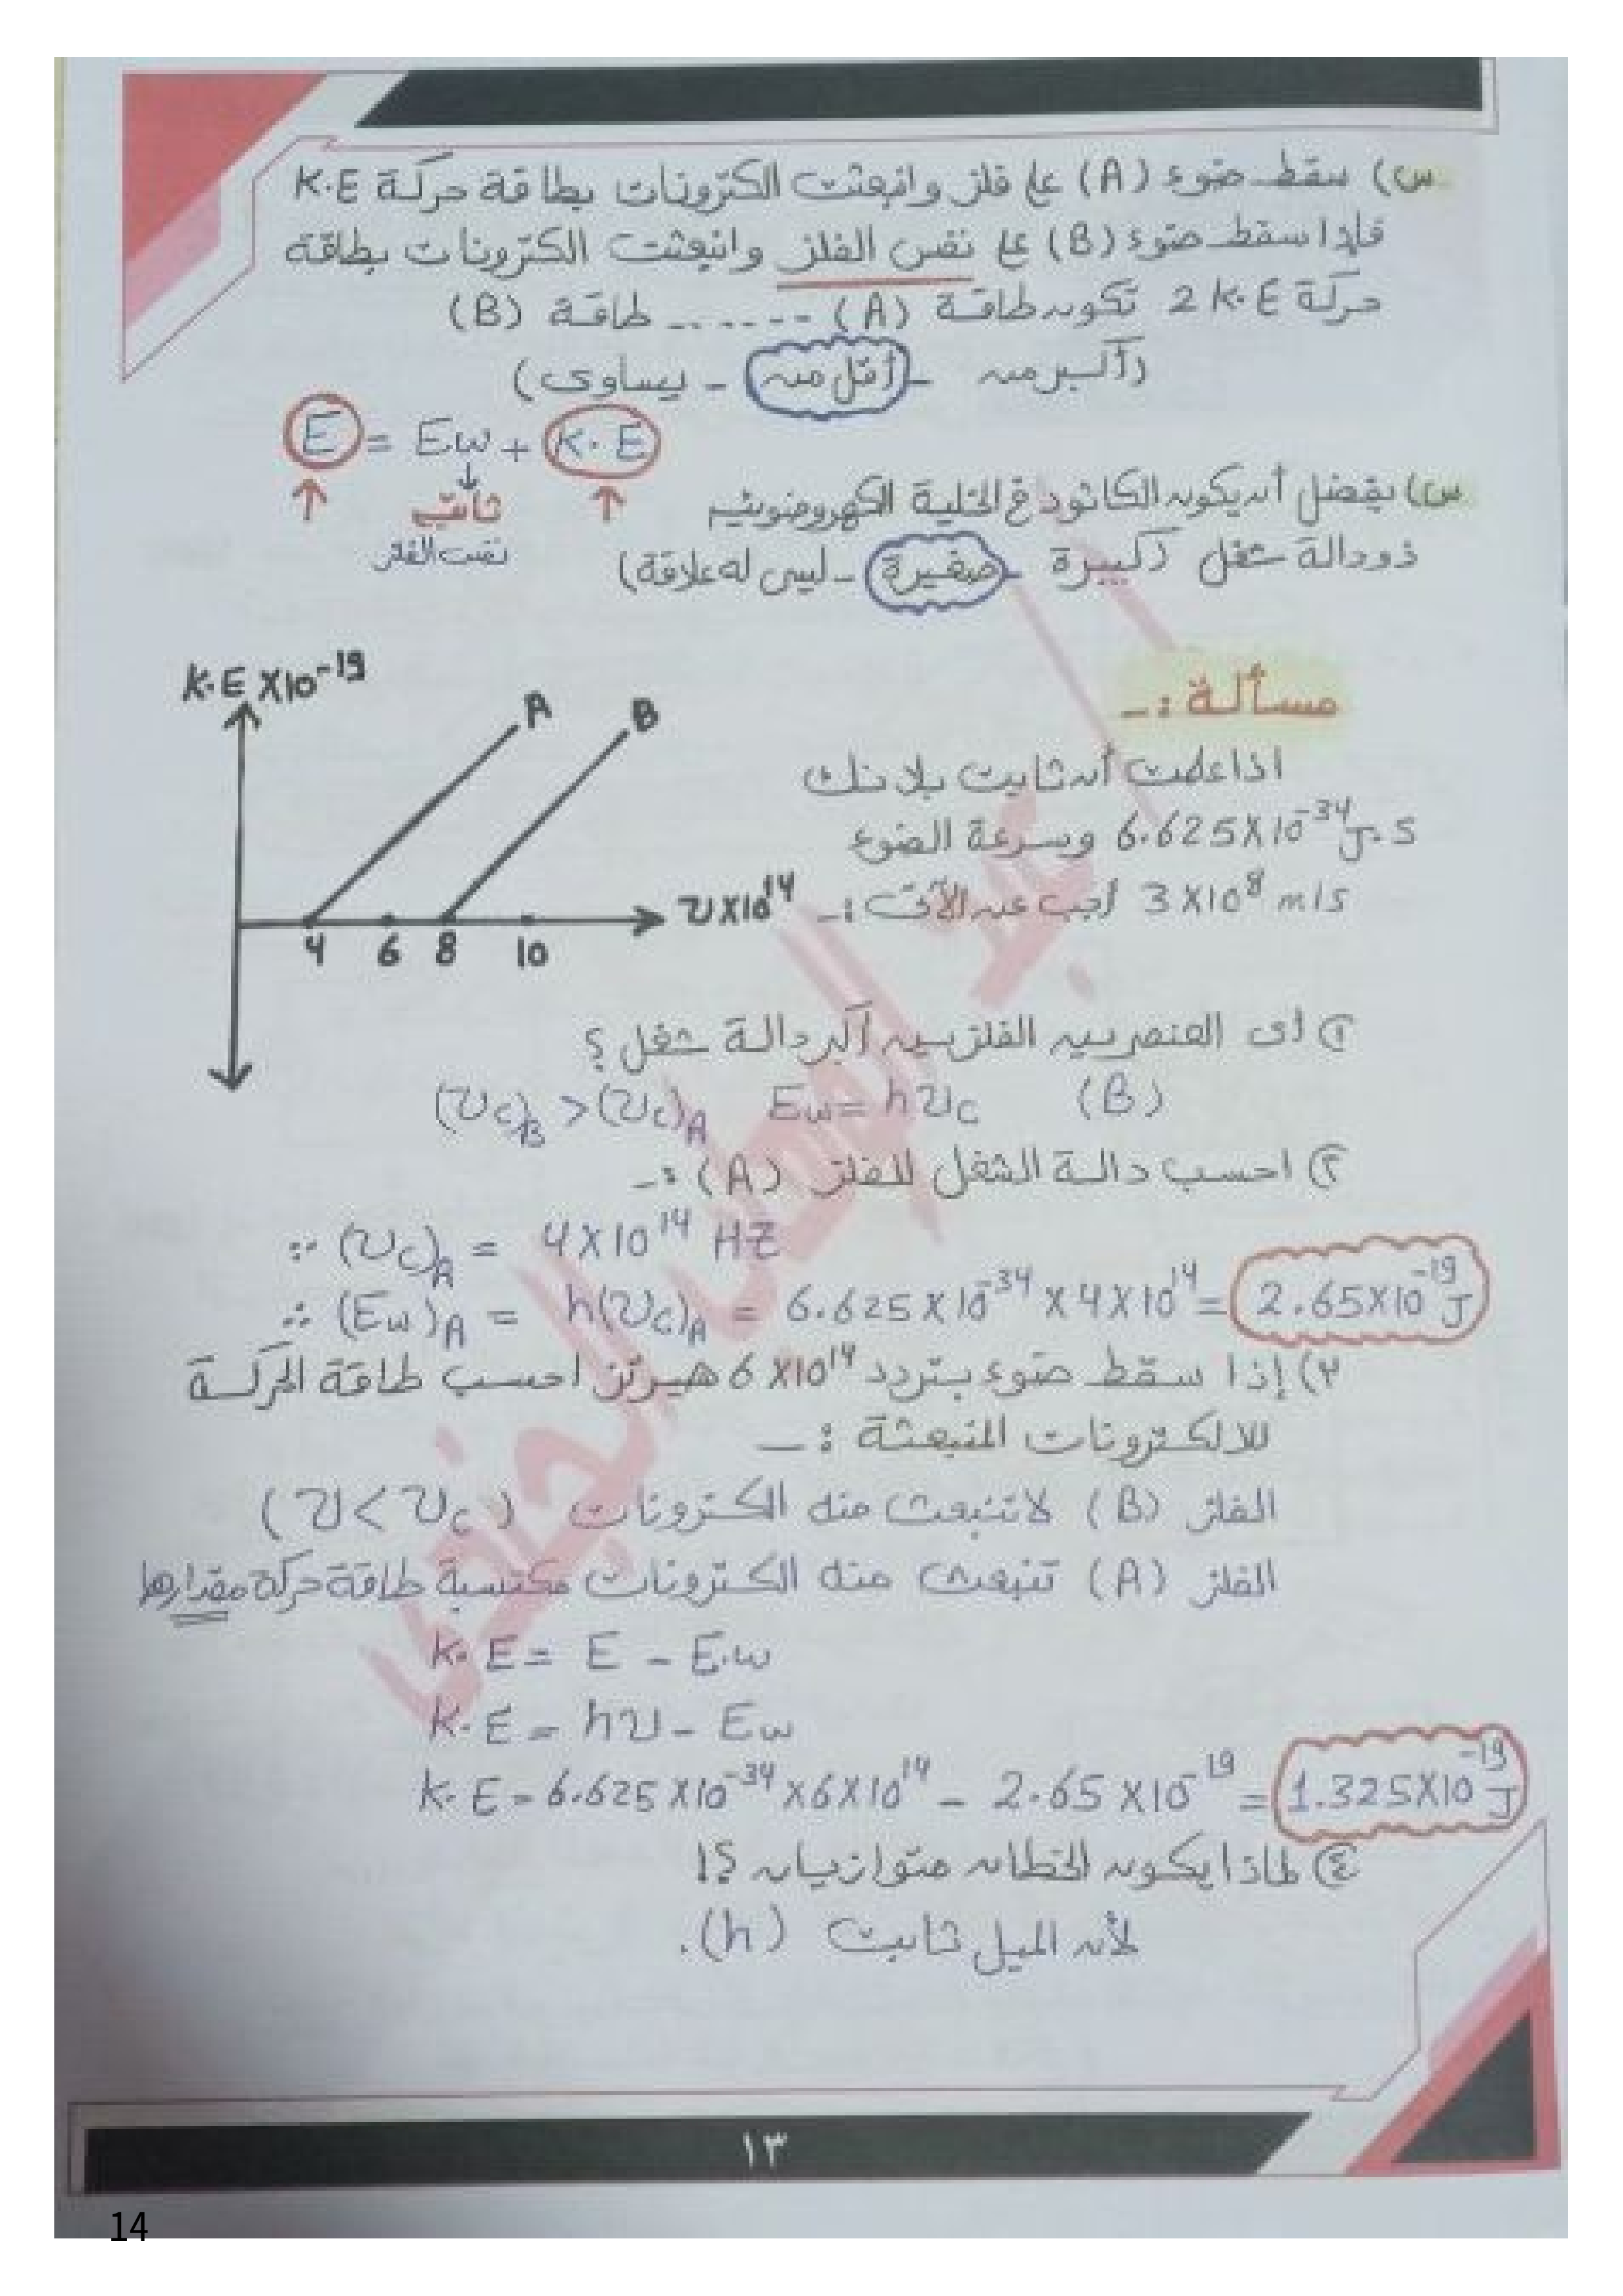 س) سقط ضوء (A) على فلز وانبعثت الكترونات بطاقة حركة K.E
فإذا سقط ضوء (B) على نفس الفلز وانبعثت الكترونات بطاقة
حركة 2 K.E تكون طاقة (A) ....... طاقة (B)
(أكبر من - أقل من - يساوى)
E = Ew + K.E
↑ ↓ ↑
ثابت
نفس الفلز
س) يفضل أن يكون الكاثود فى الخلية الكهروضوئية
ذو دالة شغل (كبيرة - صغيرة - ليس له علاقة)
مسألة :-
K.E X10⁻¹⁹
A
B
4 6 8 10
υ X10¹⁴
اذا علمت أن ثابت بلانك
6.625X10⁻³⁴ J.S وسرعة الضوء
3 X10⁸ m/s أجب عن الآتى :-
① أى العنصريين الفلزيين أكبر دالة شغل ؟
(B) Ew = hυc (υc)B > (υc)A
② احسب دالة الشغل للفلز (A) :-
∵ (υc)A = 4X10¹⁴ HZ
∴ (Ew)A = h(υc)A = 6.625X10⁻³⁴ X4X10¹⁴ = 2.65X10⁻¹⁹ J
٣) إذا سقط ضوء بتردد 6 X10¹⁴ هيرتز احسب طاقة الحركة
للالكترونات المنبعثة :-
الفلز (B) لا تنبعث منه الكترونات (υ < υc)
الفلز (A) تنبعث منه الكترونات مكتسبة طاقة حركة مقدارها
K.E = E - E.w
K.E = hυ - Ew
K.E = 6.625 X10⁻³⁴ X6X10¹⁴ - 2.65 X10⁻¹⁹ = 1.325X10⁻¹⁹ J
④ لماذا يكون الخطان متوازيان ؟!
لأن الميل ثابت (h).
١٣
14